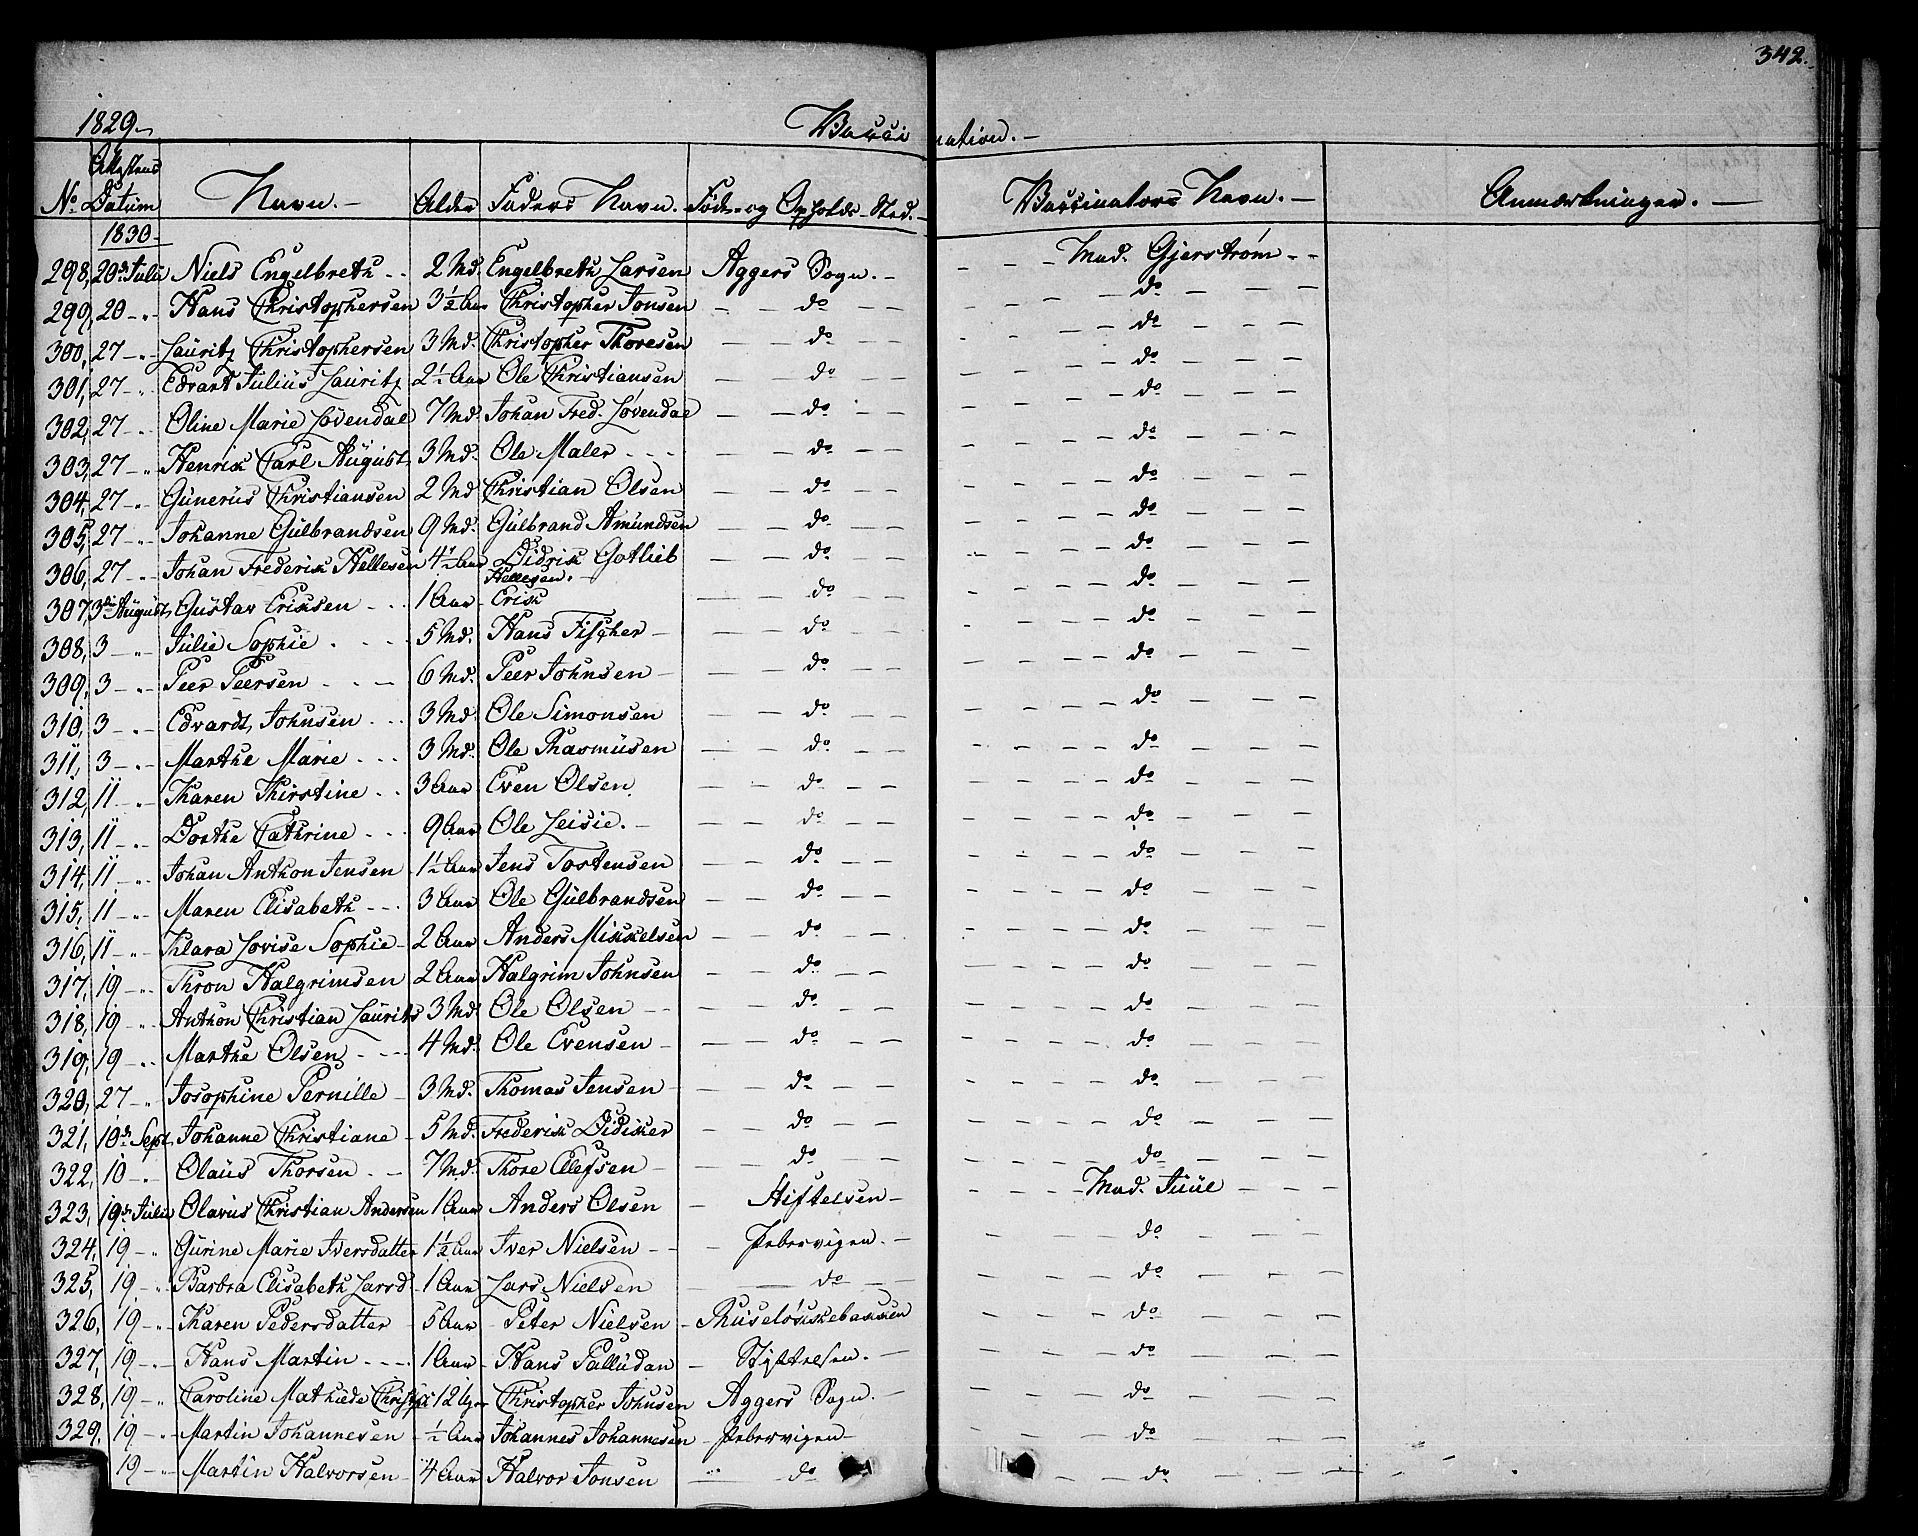 342.
1829. Vacci nation.
No Attestens Datum Navn. Alder Faders Navn. Føde- og Opholds-Sted. Vaccinators Navn. Anmærkninger.
1830.
298, 20de Julii Niels Engelbreth 2 Md. Engelbreth Larsen Aggers Sogn. Mad. Gjerstrøm
299, 20 - " Hans Christophersen 3½ Aar Christopher Jonsen do do
300, 27 - " Lauritz Christophersen 3 Md. Christopher Thoresen do do
301, 27 - " Edvart Julius Lauritz 2½ Aar Ole Christiansen do do
302, 27 - " Oline Marie Løvendal 7 Md. Johan Fred. Løvendal do do
303, 27 - " Henrik Carl August 3 Md. Ole Maler do do
304, 27 - " Gunerus Christiansen 2 Md Christian Olsen do do
305, 27 - " Johanne Gulbrandsen 9 Md. Gulbrand Amundsen do do
306, 27 - " Johan Frederik Hellesen 4½ Aar Didrik Gotlieb Hellesen. do do
307, 3die August Gustav Eriksen 1 Aar Erik do do
308, 3 - " Julie Sophie 5 Md. Hans Fischer do do
309, 3 - " Peer Peersen 6 Md. Peer Johnsen do do
310, 3 - " Edvardt Johnsen 3 Md. Ole Simonsen do do
311, 3 - " Marthe Marie 3 Md. Ole Rasmusen do do
312, 11 - " Karen Kirstine 3 Aar Even Olsen do do
313, 11 - " Dorthe Cathrine 9 Aar Ole Leisie. do do
314, 11 - " Johan Anthon Jensen 1½ Aar Jens Tostensen do do
315, 11 - " Maren Elisabeth 3 Aar Ole Gulbrandsen do do
316, 11 - " Klara Lovise Sophie 2 Aar Anders Mikkelsen do do
317, 19 - " Thron Halgrimsen 2 Aar Halgrim Johnsen do do
318, 19 - " Anthon Christian Laurits 3 Md Ole Olsen do do
319, 19 - " Marthe Olsen 4 Md. Ole Evensen do do
320, 27 - " Josophine Pernille 3 Md. Thomas Jensen do do
321, 10de Sept. Johanne Christiane 5 Md. Frederik Didiker do do
322, 10 - " Olaus Thorsen 7 Md. Thore Ellefsen do do
323, 19de Julii Olavus Christian Andersen 1 Aar Anders Olsen Stiftelsen Mad. Juul
324, 19 - " Gurine Marie Iversdatter 1½ Aar Iver Nielsen Pebervigen. do
325, 19 - " Barbra Elisabeth Larsd 1 Aar Lars Nielsen do do
326, 19 - " Karen Pedersdatter 5 Aar Peter Nielsen Ruseløkkebakken do
327, 19 - " Hans Martin 1 Aar Hans Palludan Styttelsen. do
328, 19 - " Caroline Mathilde 12 Uger Christopher Johnsen Aggers Sogn. do
329, 19 - " Martin Johannesen ½ Aar Johannes Johannesen Pebervigen do
19 - " Martin Halvorsen 4 Aar Halvor Jonsen do do